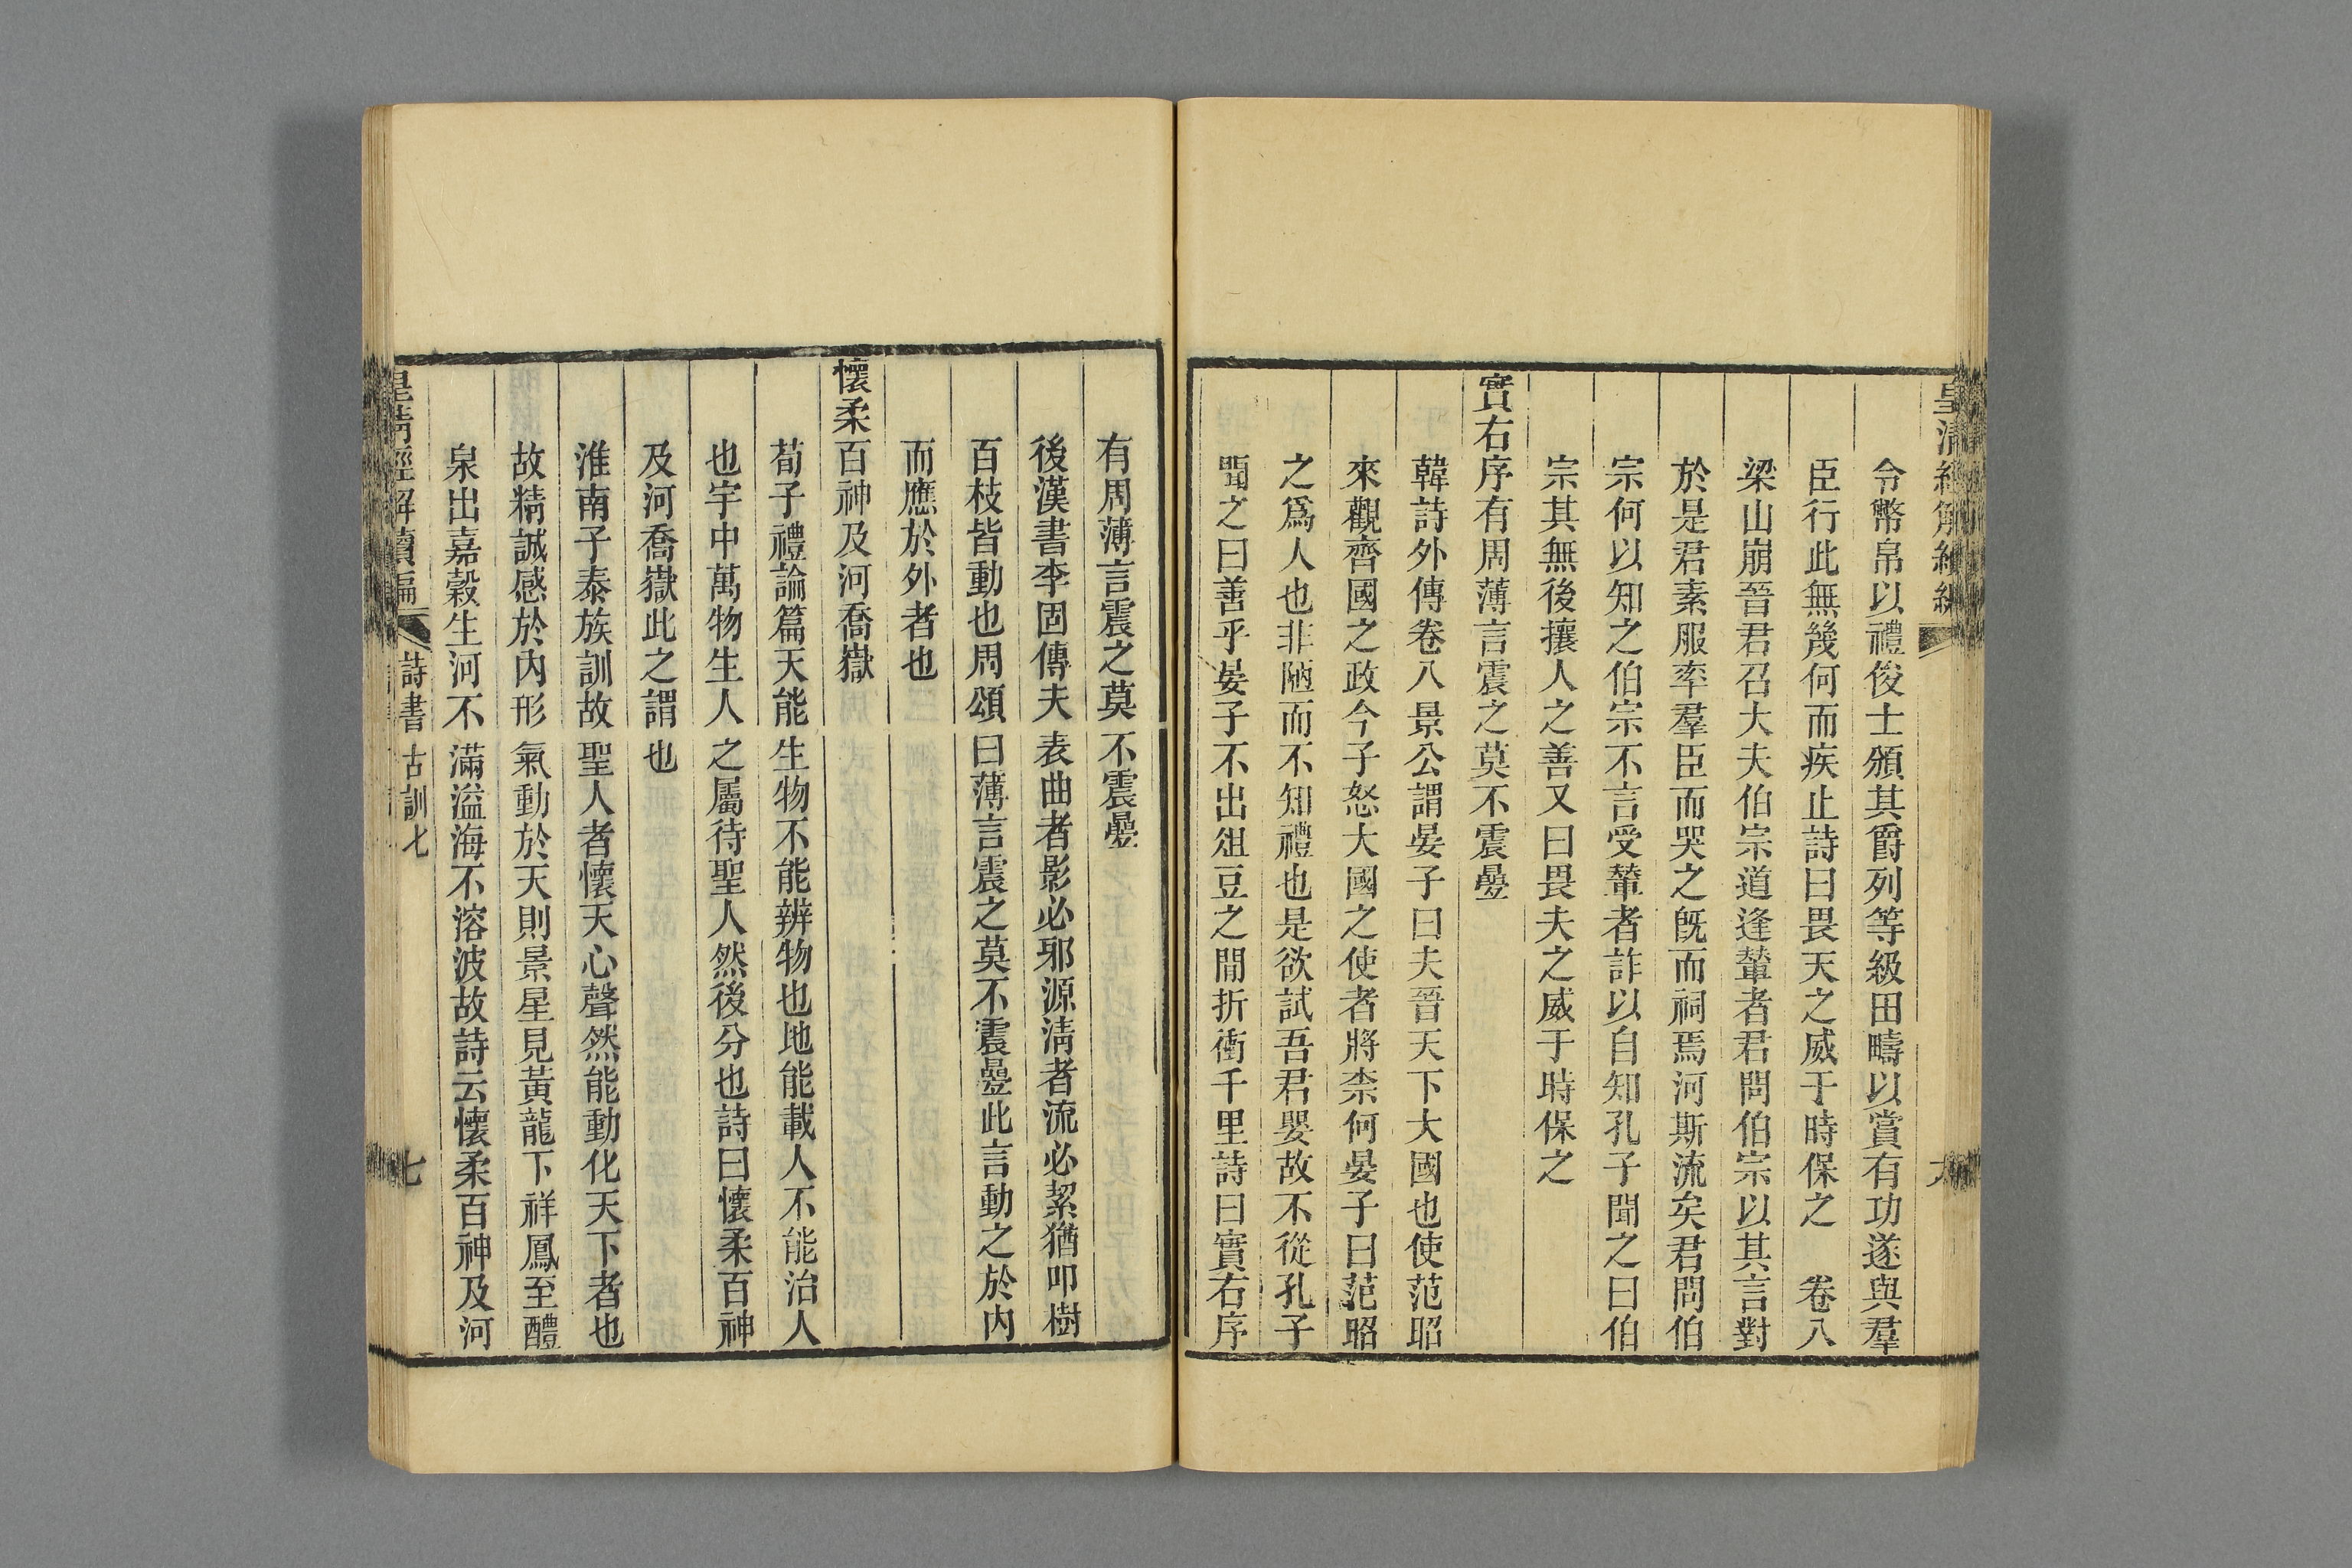 皇清經解續編
令幣帛以禮俊士頒其爵列等級田疇以賞有功遂與羣
臣行此無幾何而疾止詩曰畏天之威于時保之　卷八
梁山崩晉君召大夫伯宗道逢輦者君問伯宗以其言對
於是君素服率羣臣而哭之旣而祠焉河斯流矣君問伯
宗何以知之伯宗不言受輦者詐以自知孔子聞之曰伯
宗其無後攘人之善又曰畏夫之威于時保之
實右序有周薄言震之莫不震曡
韓詩外傳卷八景公謂晏子曰夫晉天下大國也使范昭
來觀齊國之政今子怒大國之使者將柰何晏子曰范昭
之爲人也非陋而不知禮也是欲試吾君嬰故不從孔子
聞之曰善乎晏子不出俎豆之閒折衝千里詩曰實右序
有周薄言震之莫不震曡
後漢書李固傳夫表曲者影必邪源淸者流必絜猶叩樹
百枝皆動也周頌曰薄言震之莫不震曡此言動之於內
而應於外者也
懷柔百神及河喬嶽
荀子禮論篇天能生物不能辨物也地能載人不能治人
也宇中萬物生人之屬待聖人然後分也詩曰懷柔百神
及河喬嶽此之謂也
淮南子泰族訓故聖人者懷天心聲然能動化天下者也
故精誠感於內形氣動於天則景星見黃龍下祥鳳至醴
泉出嘉穀生河不滿溢海不溶波故詩云懷柔百神及河
皇清經解續編　詩書古訓七　七